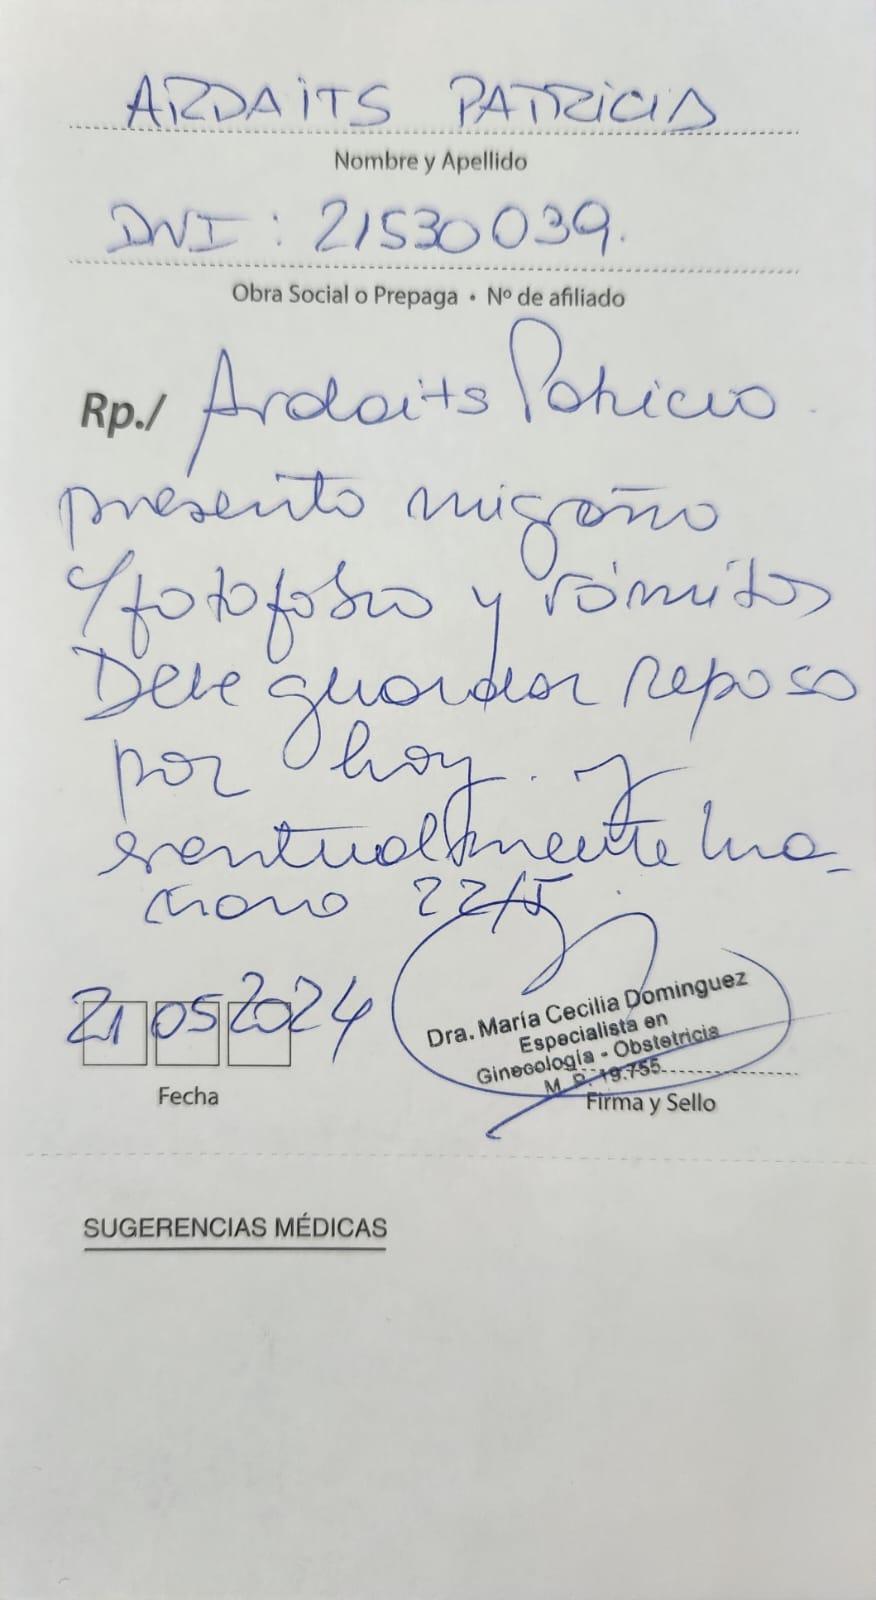 ARDAITS PATRICIA
Nombre y Apellido
DNI : 21530039.
Obra Social o Prepaga • Nº de afiliado
Rp./ Ardaits Patricia
presenta migraña
c/fotofobia y vómitos
Debe guardar reposo
por hoy. y
eventualmente ma-
ñana 22/5.
21 05 2024
Dra. María Cecilia Dominguez
Especialista en
Ginecología - Obstetricia
M. P. 19.755
Fecha
Firma y Sello
SUGERENCIAS MÉDICAS